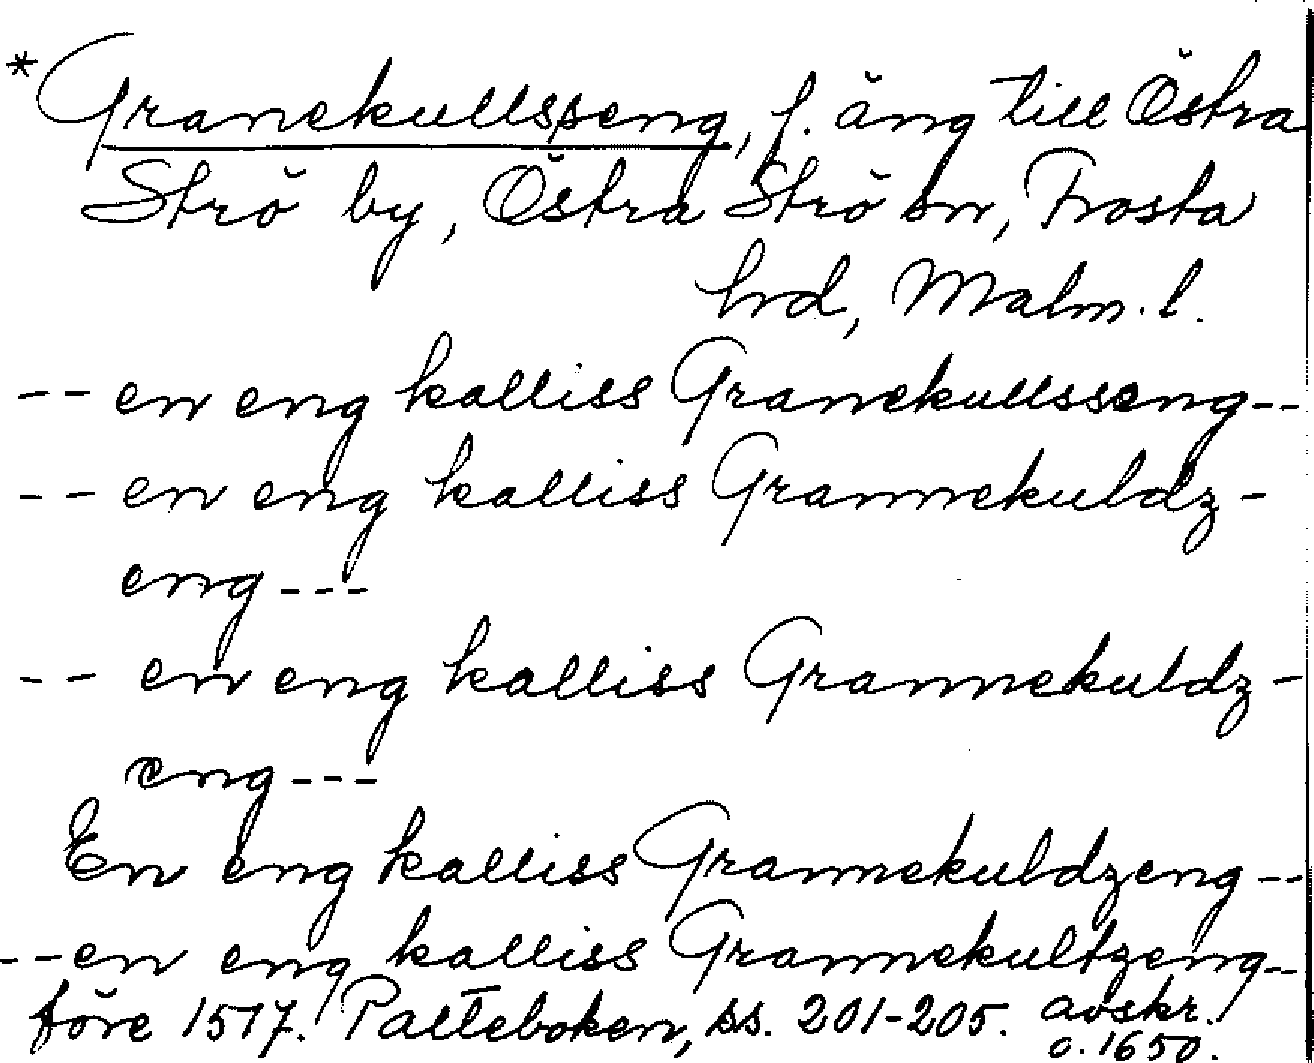 *Granekullsseng, f. äng till Östra
Strö by, Östra Strö sn, Frosta
hrd, Malm. l.
-- en eng kalliss Granekullsseng--
-- en eng kalliss Grannekuldz-
eng---
-- en eng kalliss Grannekuldz-
eng---
En eng kalliss Grannekuldzeng--
--en eng kalliss Grannekultzeng--
före 1517. Palteboken, ss. 201-205. avskr.
o. 1650.